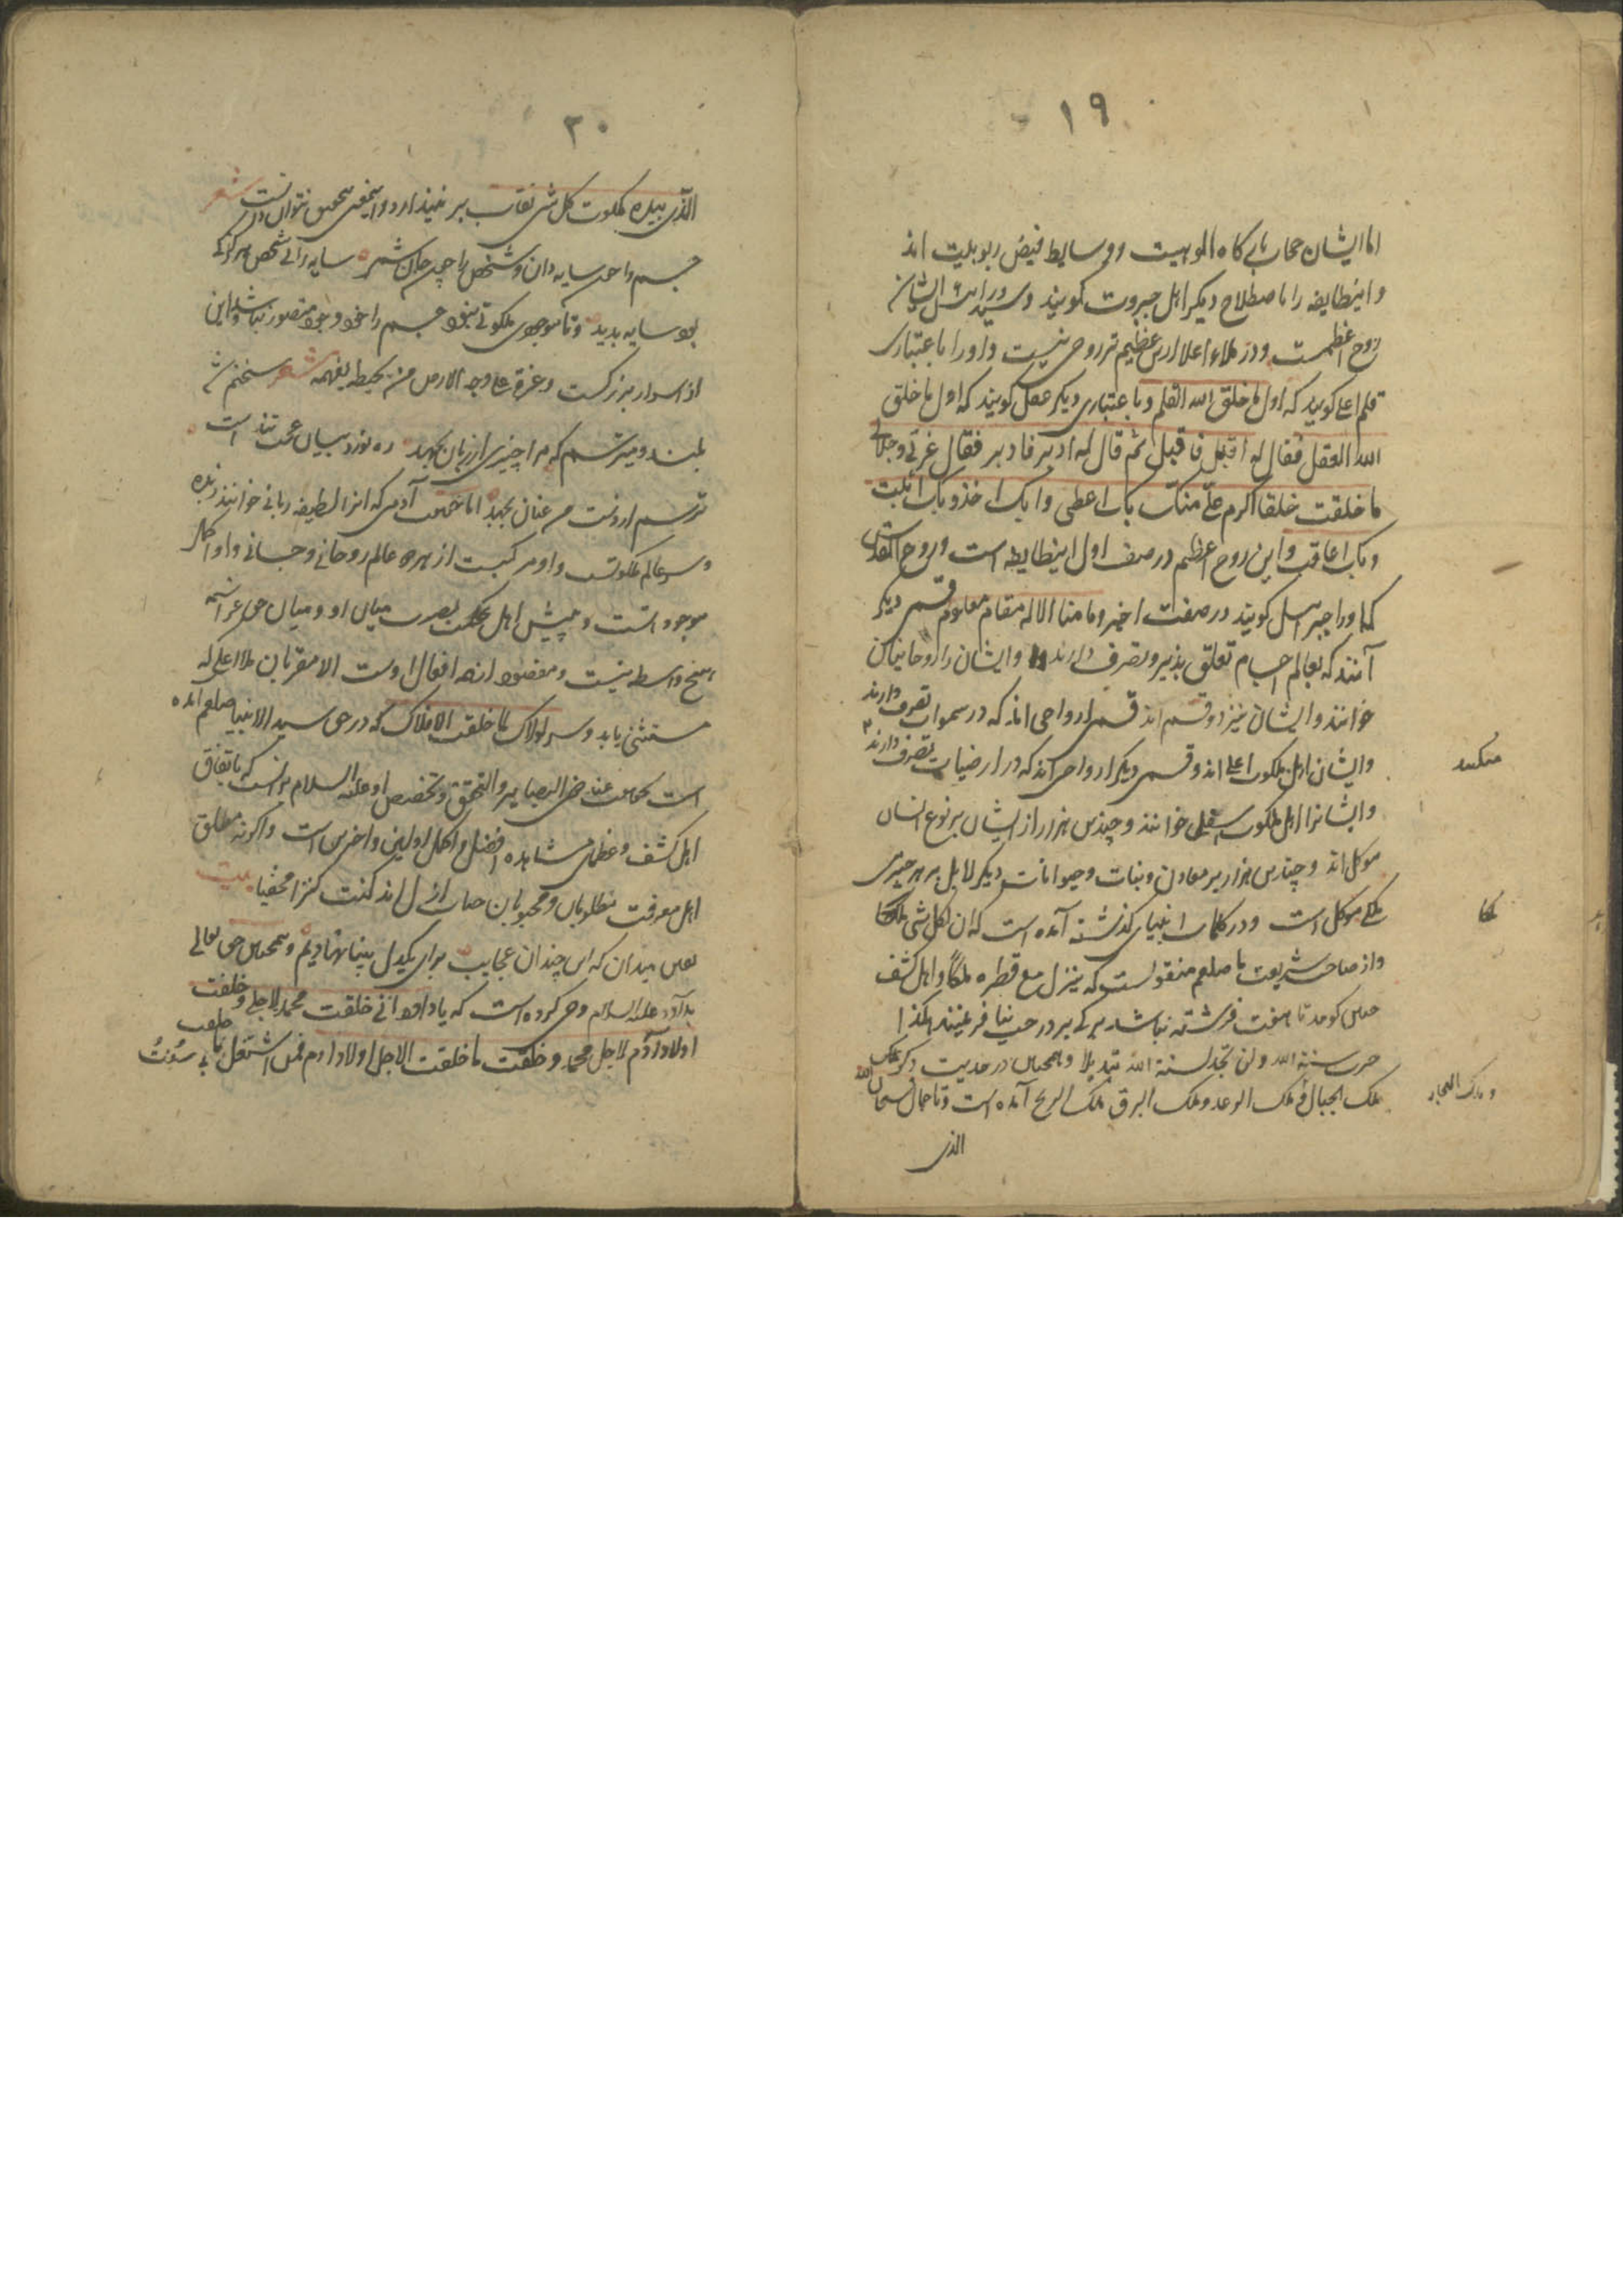 ۱۹
اما ایشان حجاب بارگاه الوهیت و وسایط فیض ربوبیت اند
و اینطایفه را باصطلاح دیگر اهل جبروت گویند و سید و رئیس ایشان
روح اعظمست و در ملاء اعلا ازین عظیم تر روحی نیست و او را باعتباری
قلم اعلی گویند که اول ما خلق الله القلم و باعتباری دیگر عقل گویند که اول ما خلق
الله العقل فقال له اقبل فاقبل ثم قال له ادبر فادبر فقال عزتی و جلالی
ما خلقت خلقا اکرم علی منک بک اعطی و بک اخذ و بک اثیب
و بک اعاقب و این روح اعظم در صف اول اینطایفه است و روح القدس
که او را جبرئیل گویند در صف اخیر و ما منا الا له مقام معلوم قسمی دیگر
آنند که بعالم اجسام تعلق تدبیر و تصرف دارند و ایشان را روحانیان
خوانند و ایشان نیز دو قسم اند قسمی ارواحی اند که در سموات تصرف دارند
و ایشان اهل ملکوت اعلی اند و قسمی دیگر ارواحی اند که در ارضیات تصرف دارند
و ایشانرا اهل ملکوت اسفل خوانند و چندین هزار از ایشان بر نوع انسان
موکل اند و چندین هزار بر معادن و نبات و حیوانات دیگر لابل بر هر چیزی
ملکی موکل است و در کلمات انبیای گذشته آمده است که ان لکل شی ملکا
و از صاحب شریعت ما صلعم منقولست که ینزل مع قطره ملکا و اهل کشف
چنین گویند تا هفت فرشته نباشد برگی بر درخت نیافرینند هکذا
جرت سنة الله و لن تجد لسنة الله تبدیلا و همچنان در حدیث ذکر ملک
ملک الجبال و ملک الرعد و ملک البرق ملک الریح آمده است و تا جمال سبحان الله
الذی
ملکا
و ملک البحار
۲۰
الذی بیده ملکوت کل شی نقاب بر نیندازد و این معنی بتحقیق نتوان دانست شعر
جسم را جز سایه دان و شخص را سایه را بی شخص هرگز کی
بود سایه پدید و تا موجودی ملکوتی نبود جسم را خود وجود متصور نباشد و این
از اسرار بزرگست و عزة علی وجه الارض من یحیطه بفهمه شعر سخنم شد
بلند و میترسم که مرا چیزی از زبان بجهد ره نورد بیان عجب تند است
ترسم از دست من عنان بجهد اما حقیقت آدمی که انرا لطیفه ربانی خوانند زبده
و سر عالم ملکوتست و او مرکبست از هر دو عالم روحانی و جسمانی و او اکمل
موجوداتست و پیش اهل حکمت و بصیرت میان او و میان حق عز اسمه
هیچ واسطه نیست و مقصود از همه افعال اوست الا مقربان ملا اعلی که
مستثنی یابد و سر لولاک لما خلقت الافلاک که در حق سید الانبیا صلعم آمده
است بحقیقت عند ذوی البصایر و التحقیق و تخصیص او علیه السلام برانست که باتفاق
اهل کشف و عظمای مشاهده افضل و اکمل اولین و اخرین است و اگرنه مطلق
اهل معرفت مطلوبان و محبوبان صاحب ان دل اند کنت کنزا مخفیا بیت
یقین میدان که این چندان عجایب برای یکدل بینا نهادیم و همچنین حق تعالی
بداود علیه السلام وحی کرده است که یا داود انی خلقت محمد لاجلی و خلقت
اولاد ادم لاجل محمد و خلقت ما خلقت لاجل اولاد ادم فمن اشتغل بی سقت